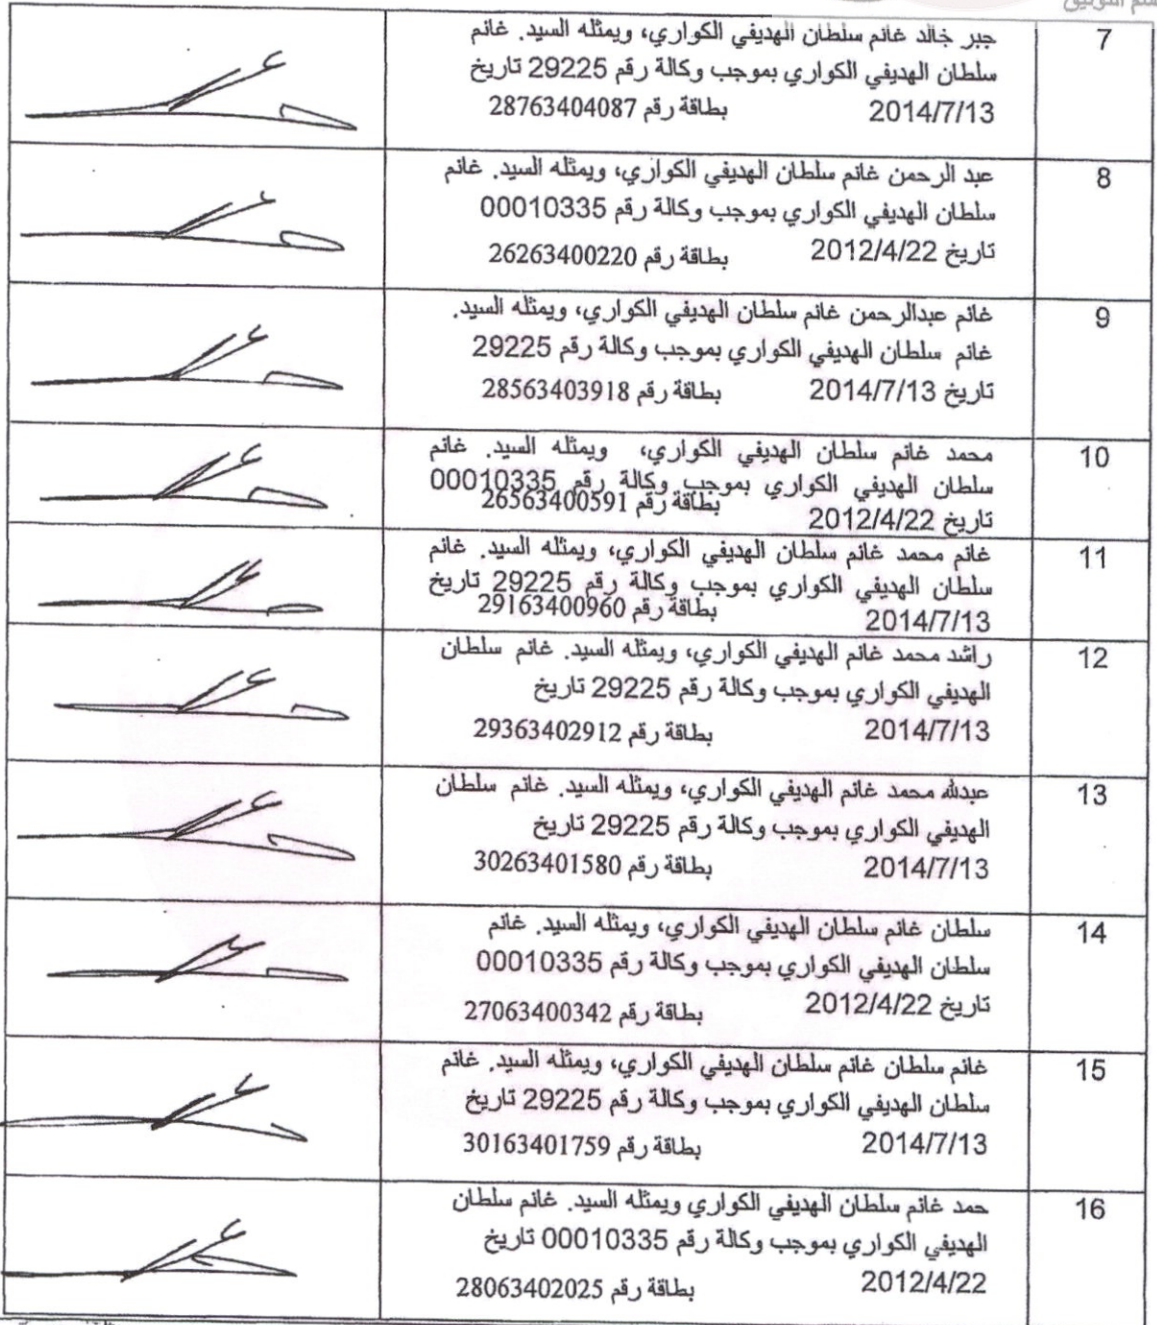 7
جبر خالد غانم سلطان الهديفي الكواري، ويمثله السيد. غانم
سلطان الهديفي الكواري بموجب وكالة رقم 29225 تاريخ
2014/7/13 بطاقة رقم 28763404087
8
عبد الرحمن غانم سلطان الهديفي الكواري، ويمثله السيد. غانم
سلطان الهديفي الكواري بموجب وكالة رقم 00010335
تاريخ 2012/4/22 بطاقة رقم 26263400220
9
غانم عبدالرحمن غانم سلطان الهديفي الكواري، ويمثله السيد.
غانم سلطان الهديفي الكواري بموجب وكالة رقم 29225
تاريخ 2014/7/13 بطاقة رقم 28563403918
10
محمد غانم سلطان الهديفي الكواري، ويمثله السيد. غانم
سلطان الهديفي الكواري بموجب وكالة رقم 00010335
تاريخ 2012/4/22 بطاقة رقم 26563400591
11
غانم محمد غانم سلطان الهديفي الكواري، ويمثله السيد. غانم
سلطان الهديفي الكواري بموجب وكالة رقم 29225 تاريخ
2014/7/13 بطاقة رقم 29163400960
12
راشد محمد غانم الهديفي الكواري، ويمثله السيد. غانم سلطان
الهديفي الكواري بموجب وكالة رقم 29225 تاريخ
2014/7/13 بطاقة رقم 29363402912
13
عبدلله محمد غانم الهديفي الكواري، ويمثله السيد. غانم سلطان
الهديفي الكواري بموجب وكالة رقم 29225 تاريخ
2014/7/13 بطاقة رقم 30263401580
14
سلطان غانم سلطان الهديفي الكواري، ويمثله السيد. غانم
سلطان الهديفي الكواري بموجب وكالة رقم 00010335
تاريخ 2012/4/22 بطاقة رقم 27063400342
15
غانم سلطان غانم سلطان الهديفي الكواري، ويمثله السيد. غانم
سلطان الهديفي الكواري بموجب وكالة رقم 29225 تاريخ
2014/7/13 بطاقة رقم 30163401759
16
حمد غانم سلطان الهديفي الكواري ويمثله السيد. غانم سلطان
الهديفي الكواري بموجب وكالة رقم 00010335 تاريخ
2012/4/22 بطاقة رقم 28063402025